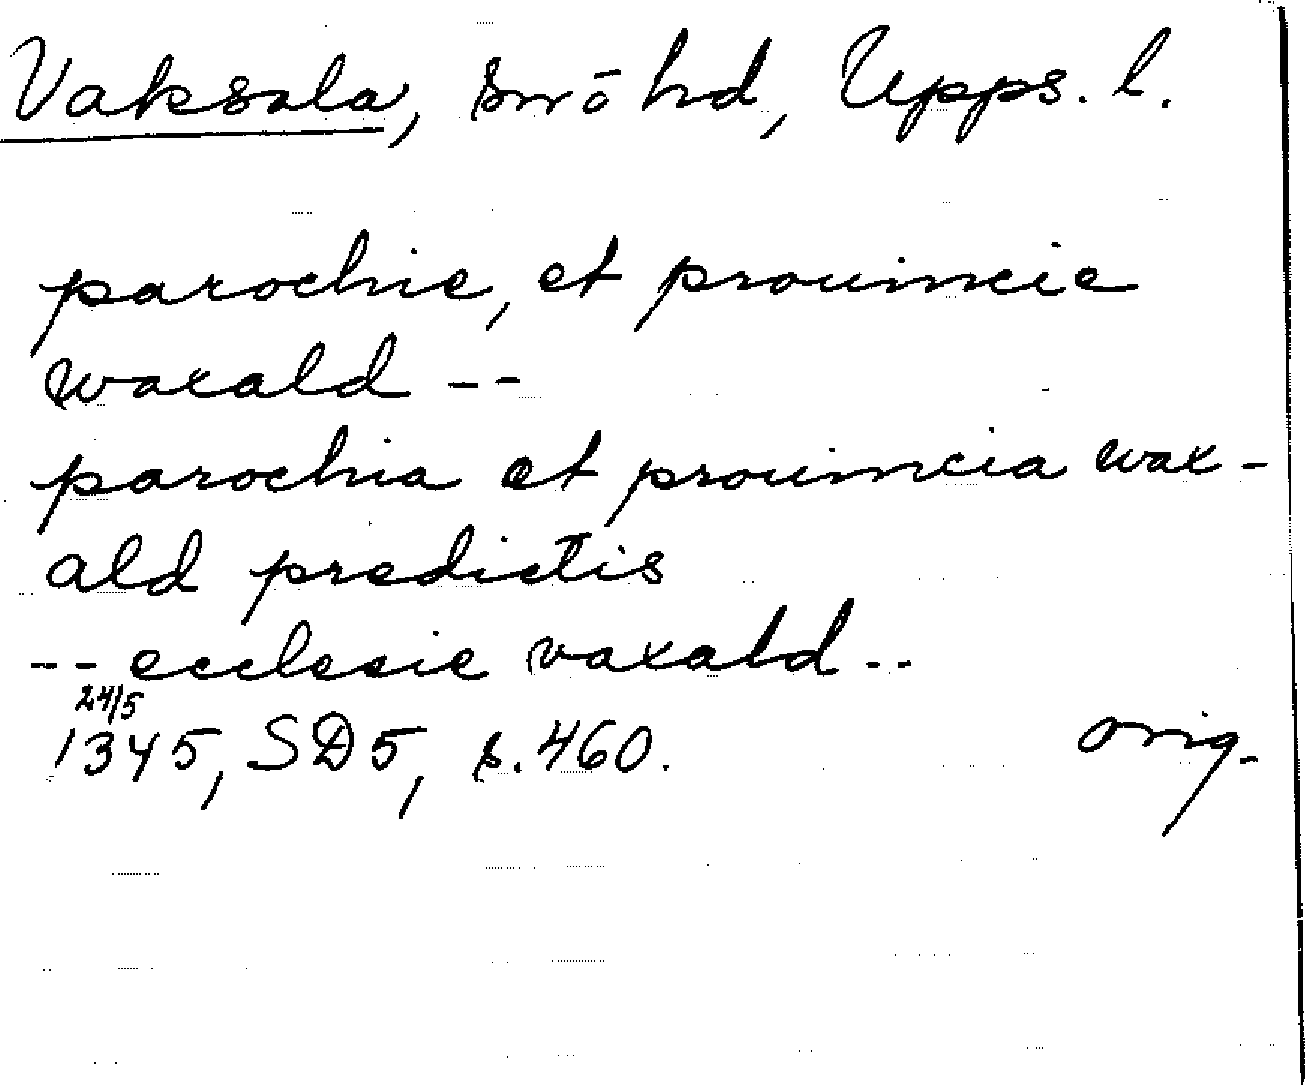 Vaksala, sn ō hd, Upps. l.
parochie, et prouincie
waxald --
parochia et prouincia wax-
ald predictis
-- ecclesie vaxald --
24/5
1345, SD5, s. 460. orig.